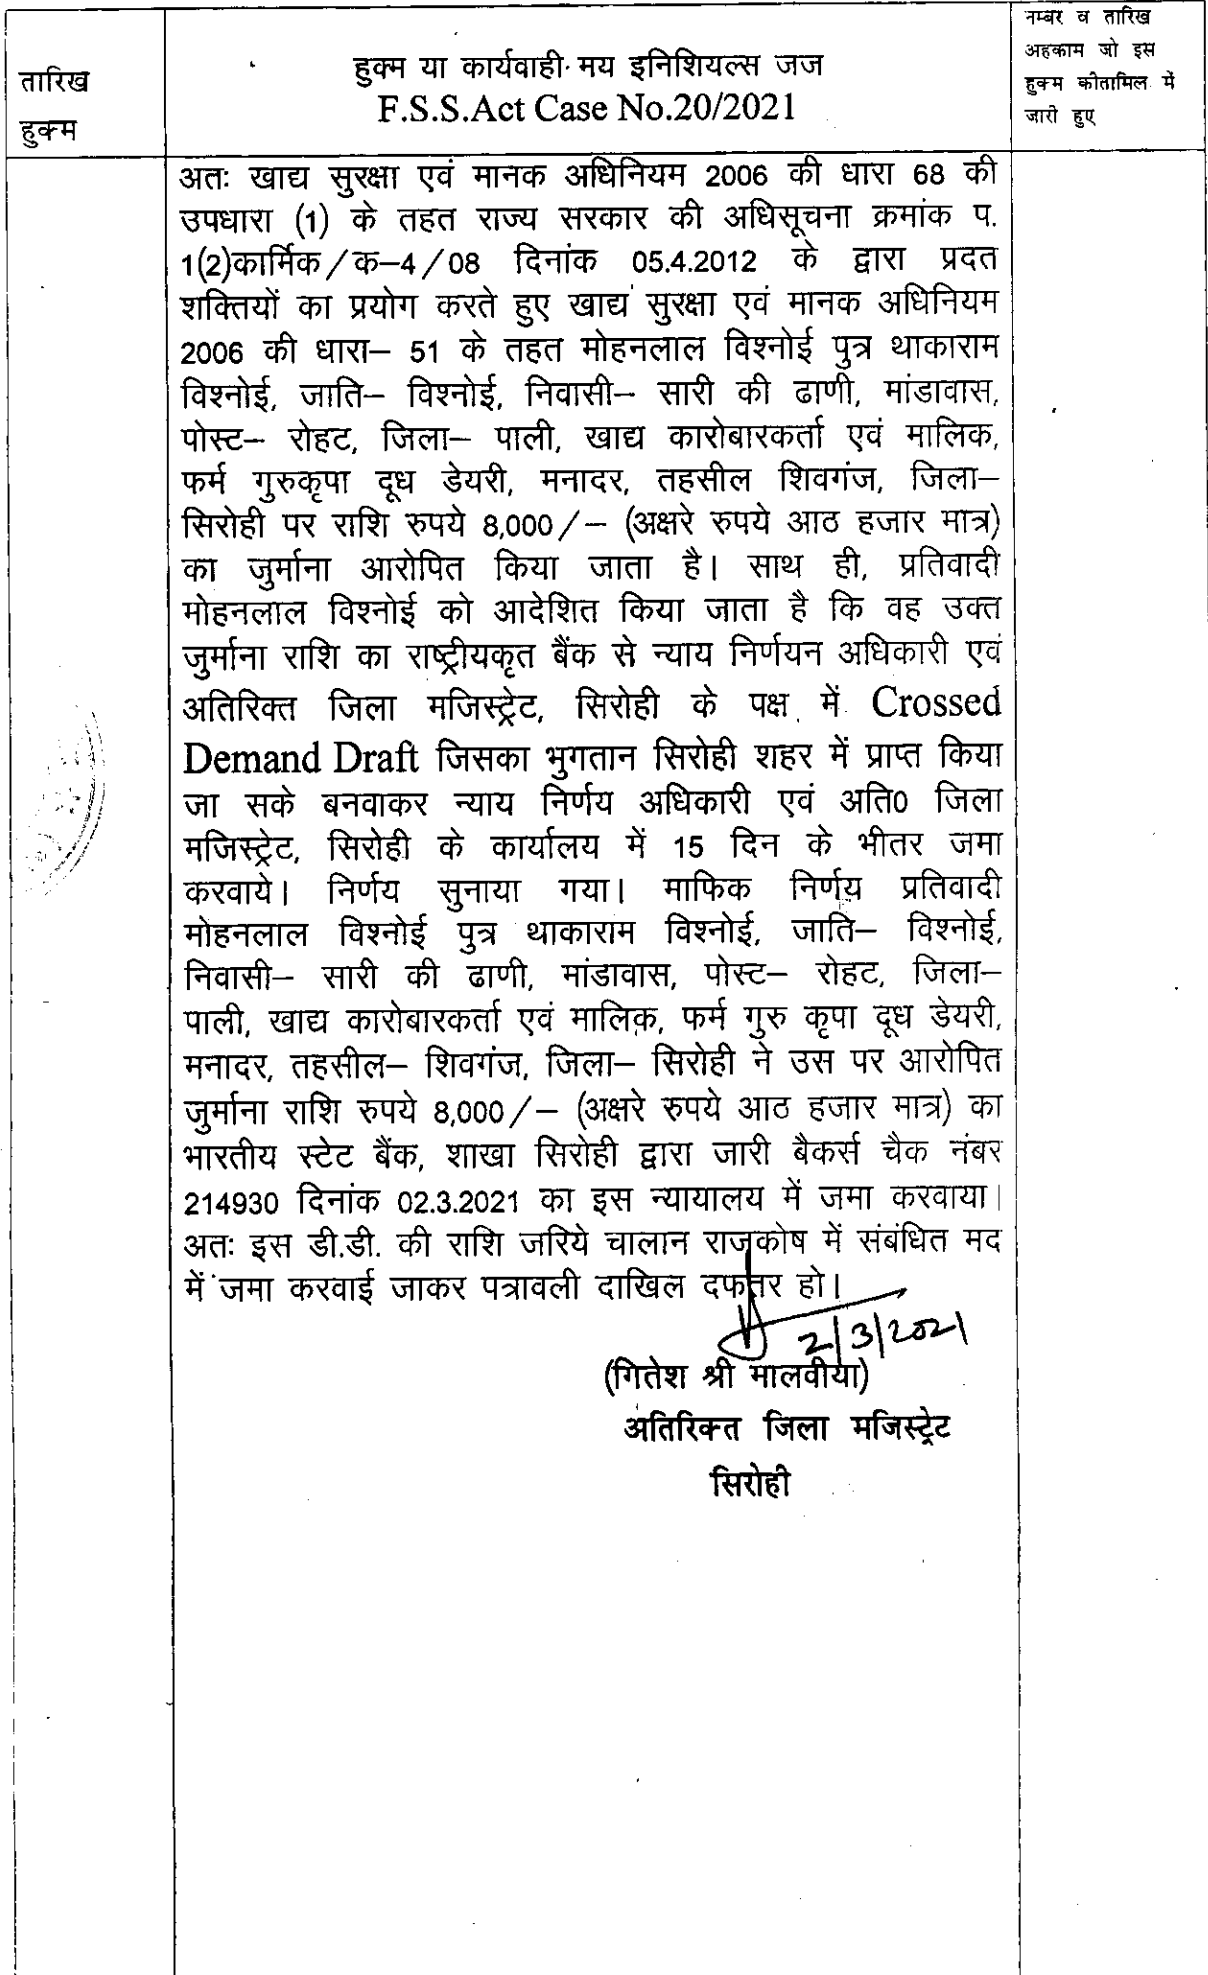 तारिख
हुक्म
हुक्म या कार्यवाही मय इनिशियल्स जज
F.S.S.Act Case No.20/2021
नम्बर व तारिख
अहकाम जो इस
हुक्म कीतामिल में
जारी हुए
अतः खाद्य सुरक्षा एवं मानक अधिनियम 2006 की धारा 68 की
उपधारा (1) के तहत राज्य सरकार की अधिसूचना क्रमांक प.
1(2)कार्मिक/क–4/08 दिनांक 05.4.2012 के द्वारा प्रदत
शक्तियों का प्रयोग करते हुए खाद्य सुरक्षा एवं मानक अधिनियम
2006 की धारा– 51 के तहत मोहनलाल विश्नोई पुत्र थाकाराम
विश्नोई, जाति– विश्नोई, निवासी– सारी की ढाणी, मांडावास,
पोस्ट– रोहट, जिला– पाली, खाद्य कारोबारकर्ता एवं मालिक,
फर्म गुरुकृपा दूध डेयरी, मनादर, तहसील शिवगंज, जिला–
सिरोही पर राशि रुपये 8,000/– (अक्षरे रुपये आठ हजार मात्र)
का जुर्माना आरोपित किया जाता है। साथ ही, प्रतिवादी
मोहनलाल विश्नोई को आदेशित किया जाता है कि वह उक्त
जुर्माना राशि का राष्ट्रीयकृत बैंक से न्याय निर्णयन अधिकारी एवं
अतिरिक्त जिला मजिस्ट्रेट, सिरोही के पक्ष में Crossed
Demand Draft जिसका भुगतान सिरोही शहर में प्राप्त किया
जा सके बनवाकर न्याय निर्णय अधिकारी एवं अति0 जिला
मजिस्ट्रेट, सिरोही के कार्यालय में 15 दिन के भीतर जमा
करवाये। निर्णय सुनाया गया। माफिक निर्णय प्रतिवादी
मोहनलाल विश्नोई पुत्र थाकाराम विश्नोई, जाति– विश्नोई,
निवासी– सारी की ढाणी, मांडावास, पोस्ट– रोहट, जिला–
पाली, खाद्य कारोबारकर्ता एवं मालिक, फर्म गुरु कृपा दूध डेयरी,
मनादर, तहसील– शिवगंज, जिला– सिरोही ने उस पर आरोपित
जुर्माना राशि रुपये 8,000/– (अक्षरे रुपये आठ हजार मात्र) का
भारतीय स्टेट बैंक, शाखा सिरोही द्वारा जारी बैकर्स चैक नंबर
214930 दिनांक 02.3.2021 का इस न्यायालय में जमा करवाया।
अतः इस डी.डी. की राशि जरिये चालान राजकोष में संबंधित मद
में जमा करवाई जाकर पत्रावली दाखिल दफतर हो।
2/3/2021
(गितेश श्री मालवीया)
अतिरिक्त जिला मजिस्ट्रेट
सिरोही